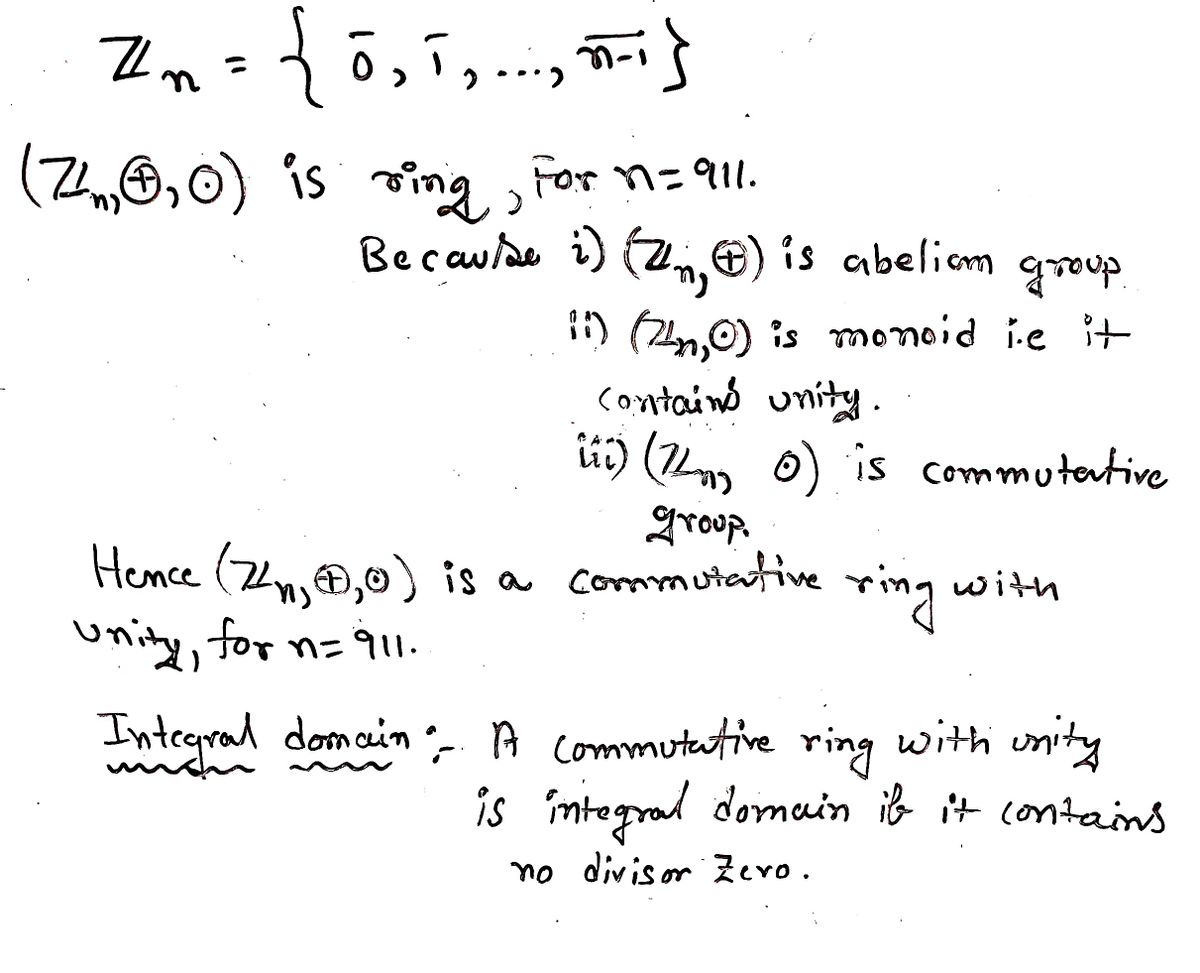 ℤn = { 0̄, 1̄, ..., n-1̅ }
(ℤn, ⊕, ⊙) is ring, For n=911.
Because i) (ℤn, ⊕) is abeliam group
ii) (ℤn, ⊙) is monoid i.e it
contains unity.
iii) (ℤn, ⊙) is commutative
group.
Hence (ℤn, ⊕, ⊙) is a commutative ring with
unity, for n=911.
Integral domain :- A commutative ring with unity
is integral domain if it contains
no divisor zero.